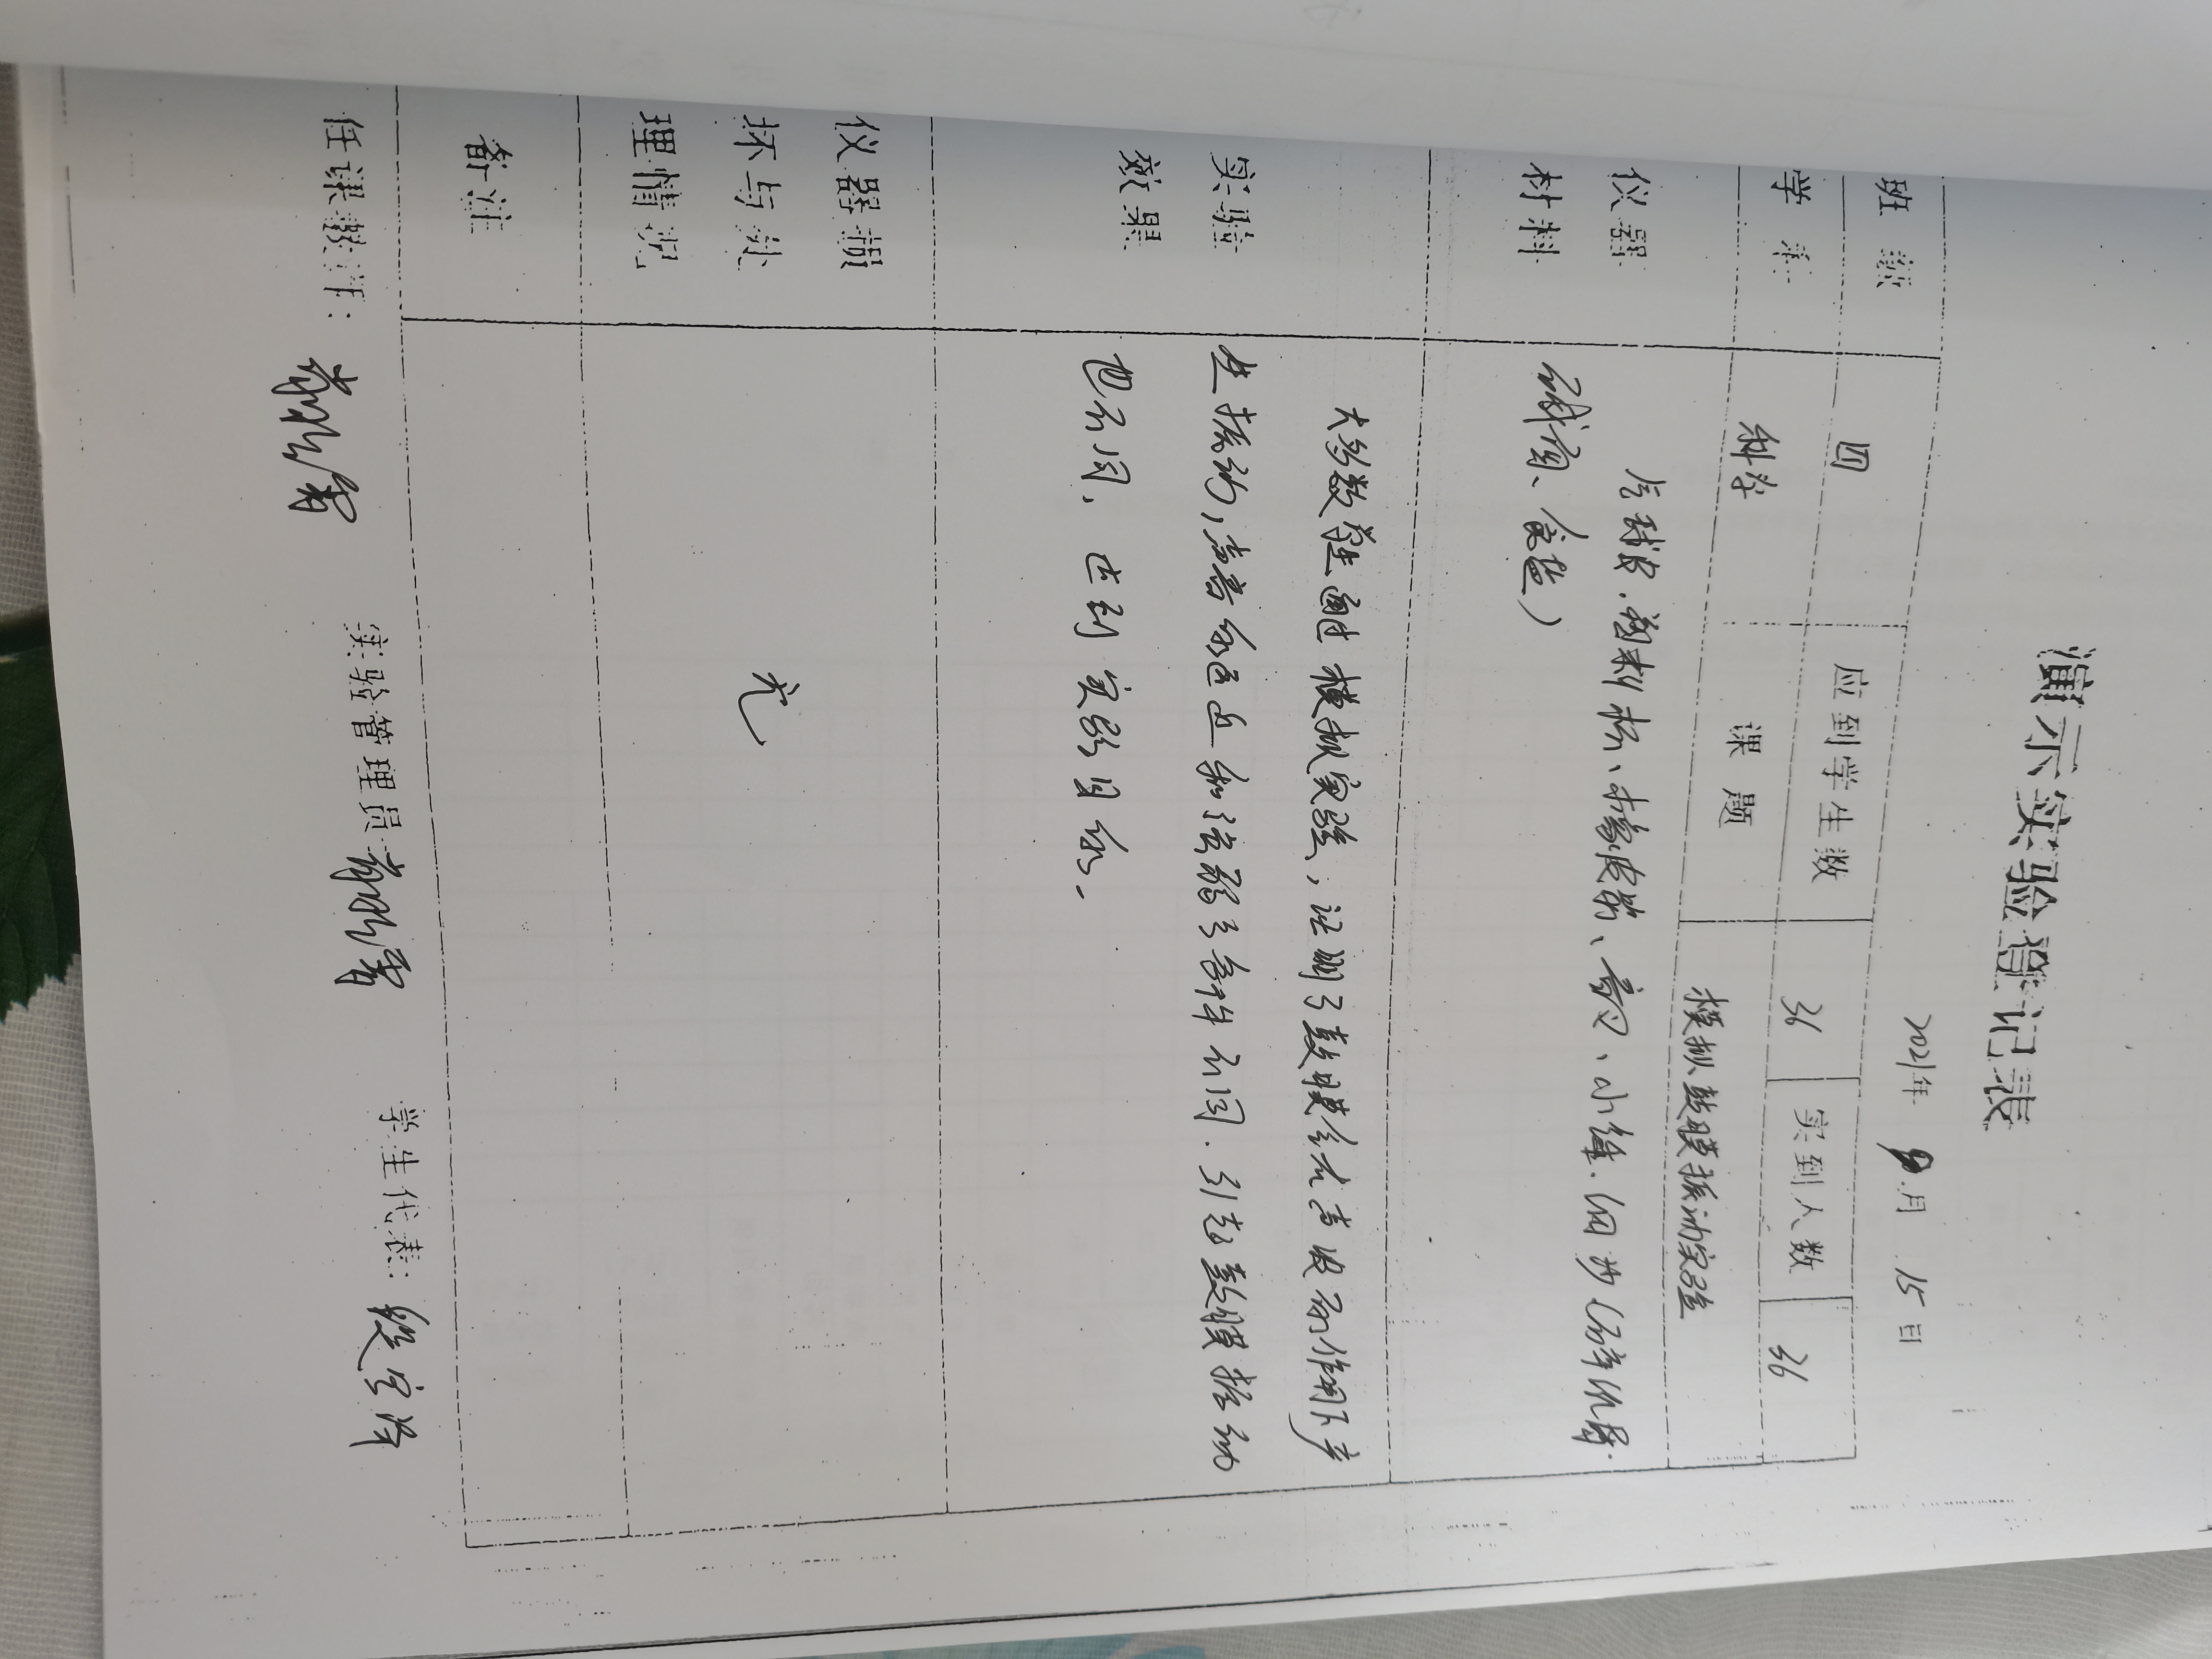 演示实验登记表
2021年 月 15日
班级 四 应到学生数 36 实到人数 36
学科 科学 课题 模拟鼓膜振动实验
仪器材料 气球皮、塑料杯、橡皮筋、音叉、小锤、细沙(
碱面、食盐)
实验效果 大多数学生通过模拟实验,证明了鼓膜会在声波的作用下产
生振动,声音的远近和强弱等条件不同.引起鼓膜振动
也不同,达到实验目的.
仪器损坏与处理情况 无
备注
任课教师: 实验管理员 学生代表: